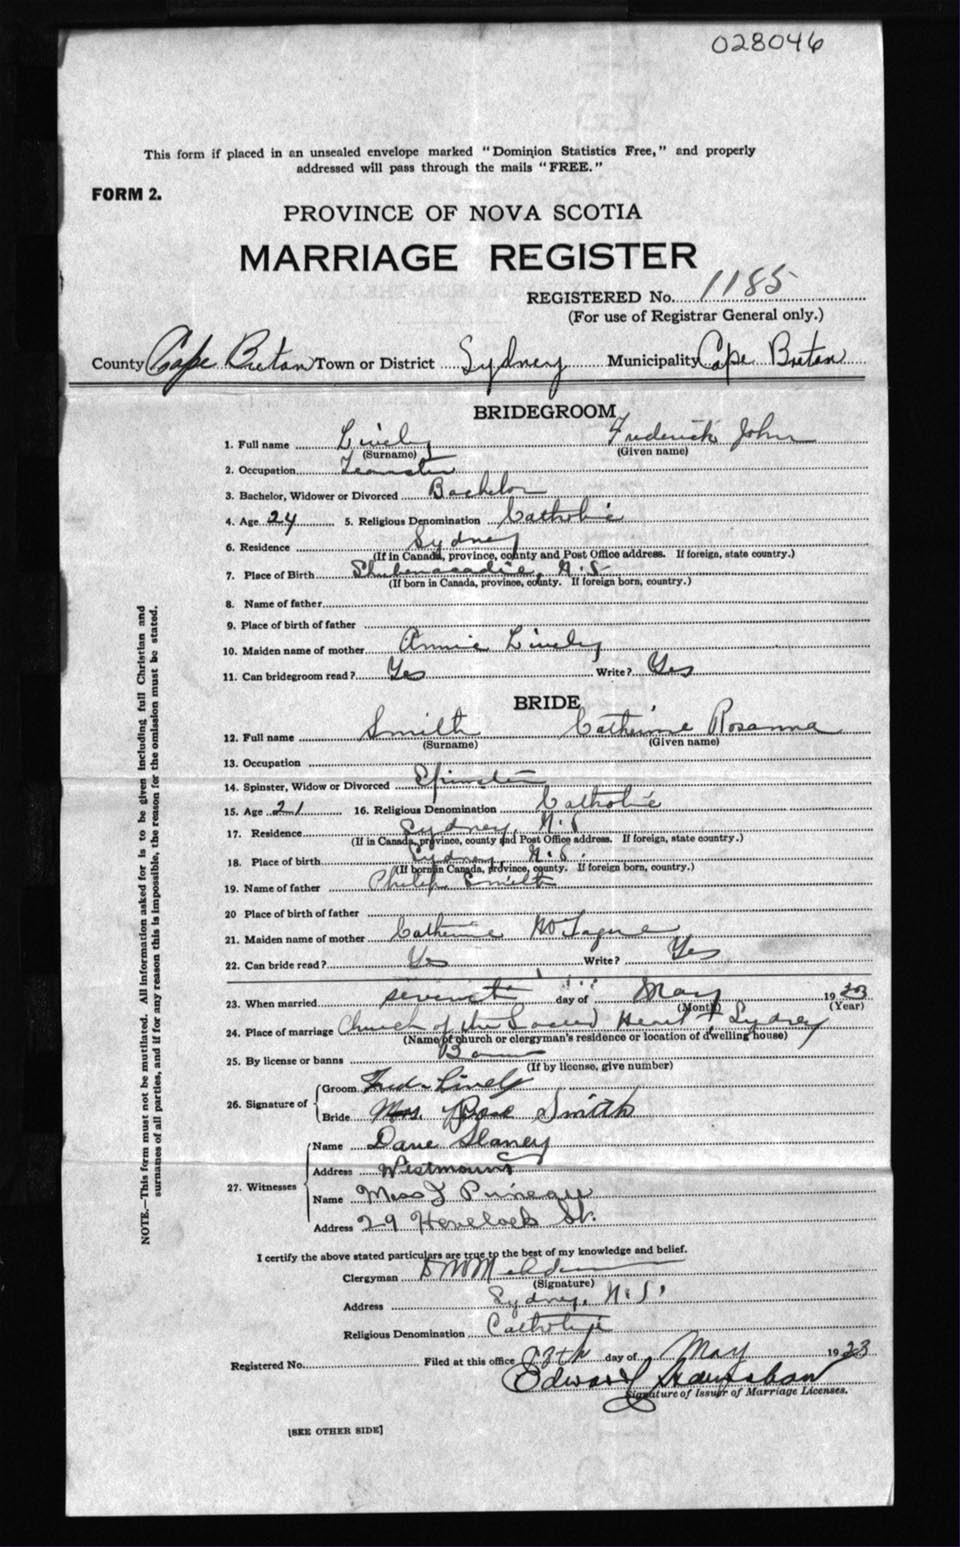 028046
This form if placed in an unsealed envelope marked "Dominion Statistics Free," and properly
addressed will pass through the mails "FREE."
FORM 2.
PROVINCE OF NOVA SCOTIA
MARRIAGE REGISTER
REGISTERED No. 1185
(For use of Registrar General only.)
County Cape Breton Town or District Sydney Municipality Cape Breton
BRIDEGROOM
1. Full name Lively Frederick John
(Surname) (Given name)
2. Occupation Teamster
3. Bachelor, Widower or Divorced Bachelor
4. Age 24 5. Religious Denomination Catholic
6. Residence Sydney
(If in Canada, province, county and Post Office address. If foreign, state country.)
7. Place of Birth Shubenacadie, N.S.
(If born in Canada, province, county. If foreign born, country.)
8. Name of father
9. Place of birth of father
10. Maiden name of mother Annie Lively
11. Can bridegroom read? Yes Write? Yes
BRIDE
12. Full name Smith Catherine Rosanna
(Surname) (Given name)
13. Occupation
14. Spinster, Widow or Divorced Spinster
15. Age 21 16. Religious Denomination Catholic
17. Residence Sydney, N.S.
(If in Canada, province, county and Post Office address. If foreign, state country.)
18. Place of birth Sydney, N.S.
(If born in Canada, province, county. If foreign born, country.)
19. Name of father Philip Smith
20 Place of birth of father
21. Maiden name of mother Catherine
22. Can bride read? Yes Write? Yes
23. When married day of May 1923
(Month) (Year)
24. Place of marriage Church of the Sacred Heart Sydney
(Name of church or clergyman's residence or location of dwelling house)
25. By license or banns
(If by license, give number)
26. Signature of
Groom Fred Lively
Bride Mrs. Rose Smith
27. Witnesses
Name Dave Slaney
Address Westmount
Name Miss J
Address 29 Havelock St.
I certify the above stated particulars are true to the best of my knowledge and belief.
Clergyman
(Signature)
Address Sydney, N.S.
Religious Denomination Catholic
Registered No. Filed at this office day of May 1923
Edward
Signature of Issuer of Marriage Licenses.
[SEE OTHER SIDE]
NOTE.—This form must not be mutilated. All information asked for is to be given including full Christian and
surnames of all parties, and if for any reason this is impossible, the reason for the omission must be stated.